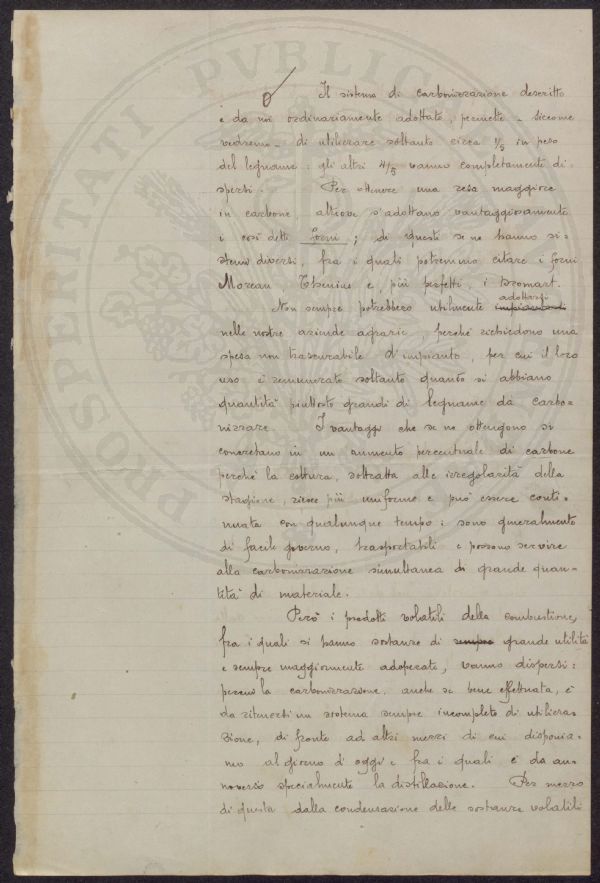 Il sistema di carbonizzazione descritto
e da noi ordinariamente adottato, permette - siccome
vedremo - di utilizzare soltanto circa 1/5 in peso
del legname: gli altri 4/5 vanno completamente di
spersi. Per ottenere una resa maggiore
in carbone, altrove s'adottano vantaggiosamente
i così detti forni; di questi se ne hanno si=
stemi diversi, fra i quali potremmo citare i forni
Moreau, e, più perfetti, i Dromart.
Non sempre potrebbero utilmente adottarsi
nelle nostre aziende agrarie, perché richiedono una
spesa non trascurabile d'impianto, per cui il loro
uso è remunerato soltanto quando si abbiano
quantità piuttosto grandi di legname da carbo=
nizzare. I vantaggi che se ne ottengono si
concretano in un aumento percentuale di carbone
perché la cottura, sottratta alle irregolarità della
stagione, riesce più uniforme e può essere conti=
nuata con qualunque tempo: sono generalmente
di facile governo, trasportabili e possono servire
alla carbonizzazione simultanea di grande quan=
tità di materiale.
Però i prodotti volatili della combustione,
fra i quali si hanno sostanze di sempre grande utilità
e sempre maggiormente adoperate, vanno dispersi:
perciò la carbonizzazione, anche se bene effettuata, è
da ritenersi un sistema sempre incompleto di utilizza=
zione, di fronte ad altri mezzi di cui disponia=
mo al giorno d'oggi e fra i quali è da an=
noverare specialmente la distillazione. Per mezzo
di questa dalla condensazione delle sostanze volatili
PROSPERITATI PVBLICAE